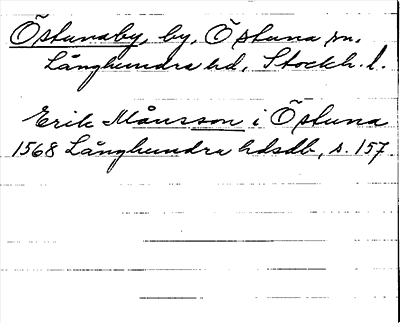 Östunaby, by, Östuna sn,
Långhundra hd, Stockh. l.
Erik Månsson i Östuna
1568 Långhundra hdsdb, s. 157.